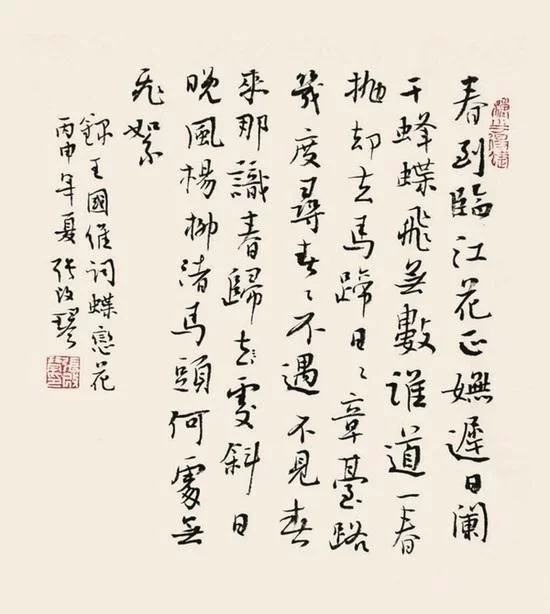 春到臨江花正嫵遲日闌
干蜂蝶飛無數誰道一春
抛却去馬蹄日〻章臺路
幾度尋春〻不遇不見春
來那識春歸去處斜日
晚風楊柳渚馬頭何處無
飛絮
錄王國維詞蝶戀花
丙申年夏張改琴